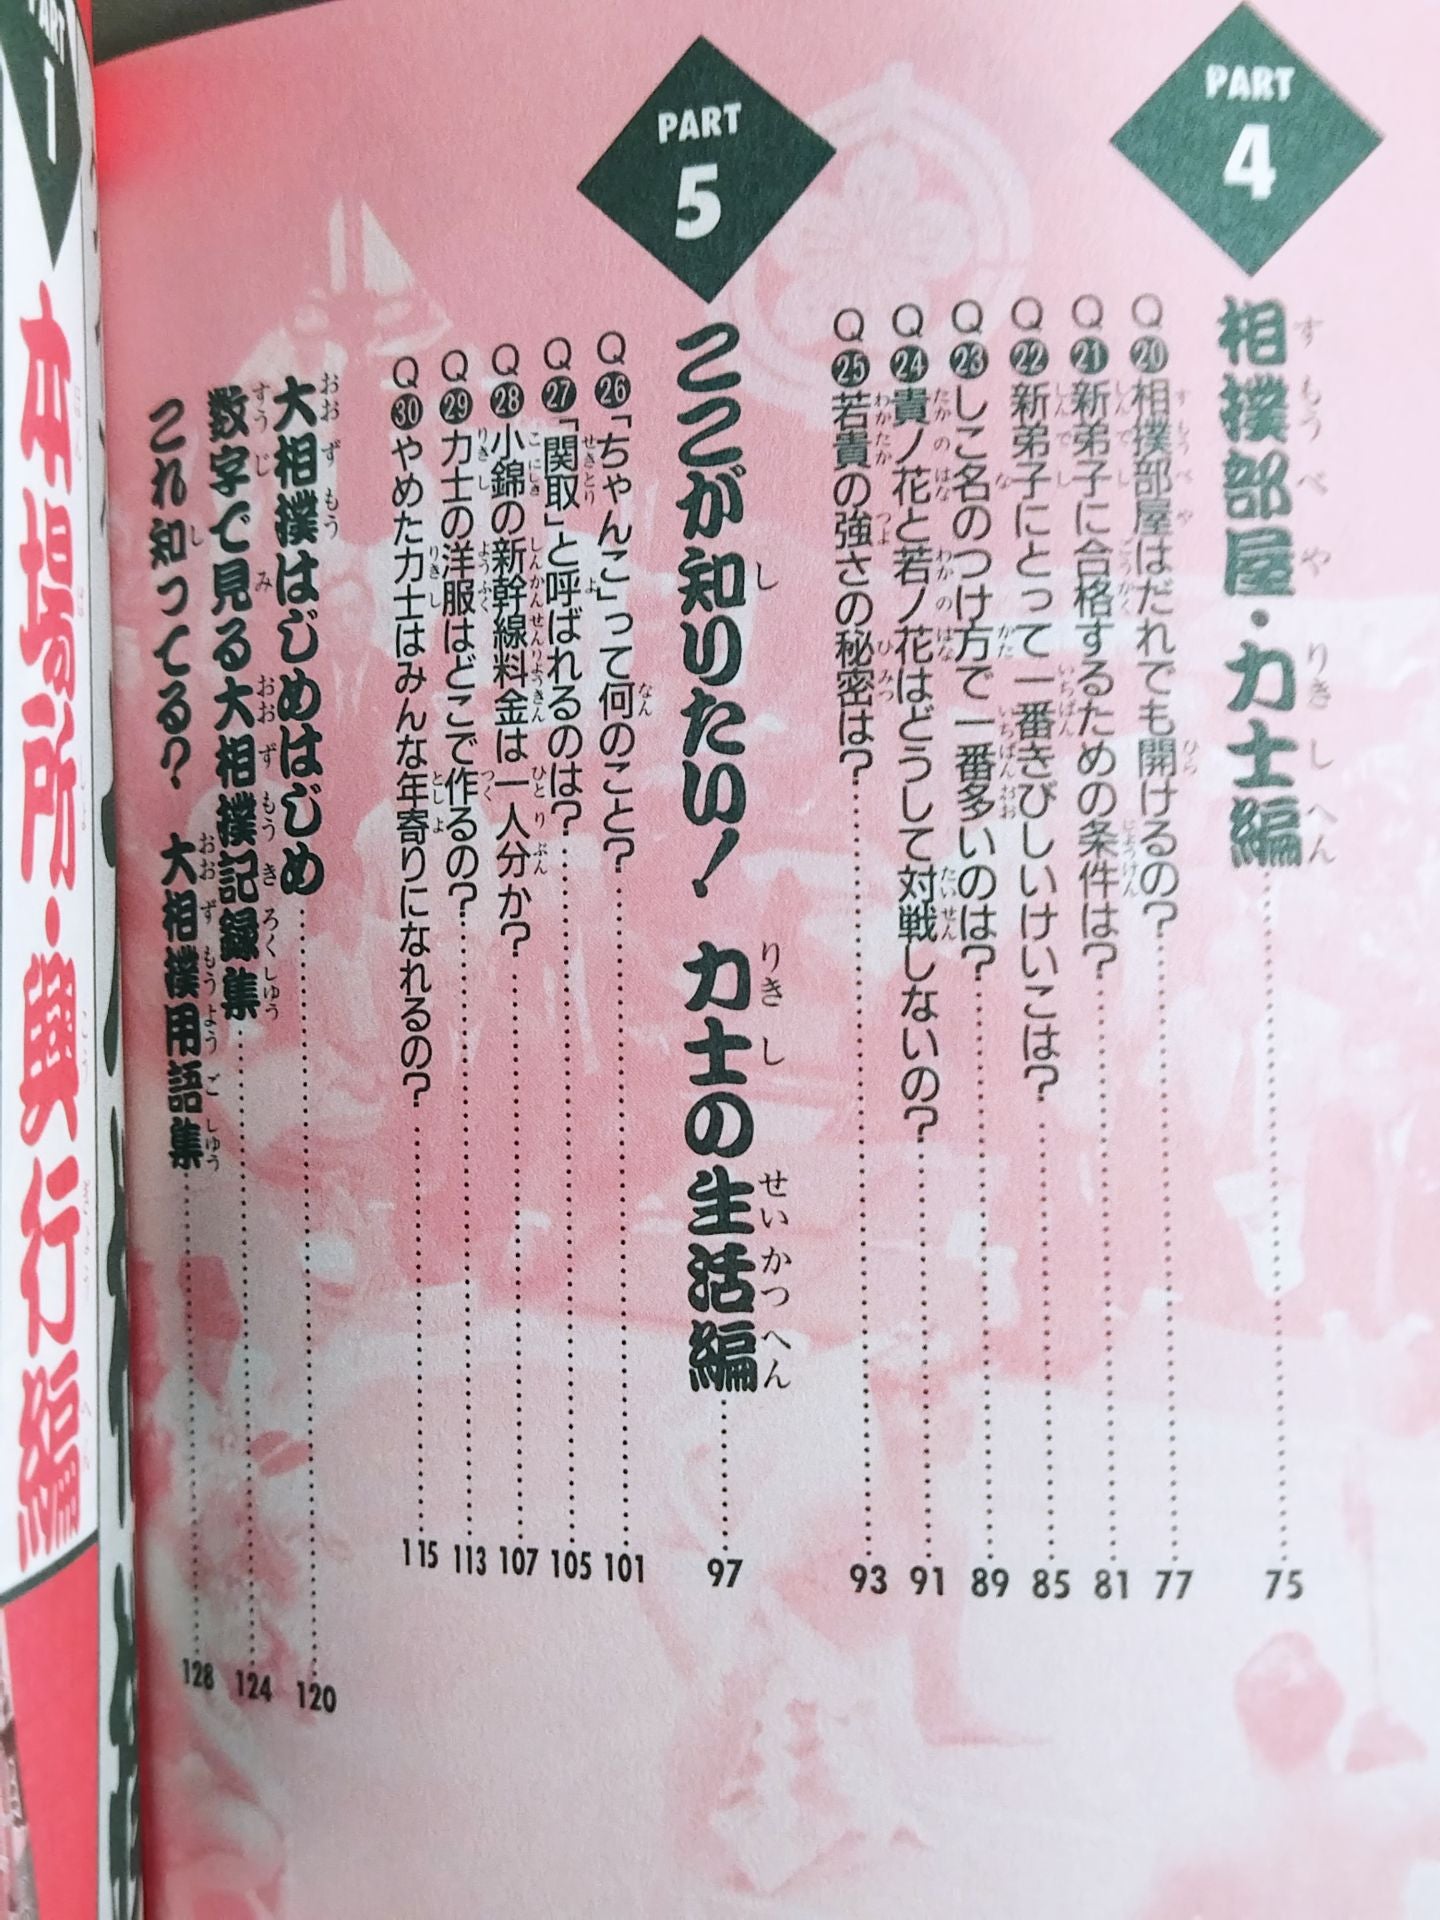 PART
4
相撲部屋・力士編……75
Q⑳相撲部屋はだれでも開けるの?……77
Q㉑新弟子に合格するための条件は?……81
Q㉒新弟子にとって一番きびしいけいこは?……85
Q㉓しこ名のつけ方で一番多いのは?……89
Q㉔貴ノ花と若ノ花はどうして対戦しないの?……91
Q㉕若貴の強さの秘密は?……93
PART
5
ここが知りたい! 力士の生活編……97
Q㉖「ちゃんこ」って何のこと?……101
Q㉗「関取」と呼ばれるのは?……105
Q㉘小錦の新幹線料金は一人分か?……107
Q㉙力士の洋服はどこで作るの?……113
Q㉚やめた力士はみんな年寄りになれるの?……115
大相撲はじめはじめ……120
数字で見る大相撲記録集……124
これ知ってる? 大相撲用語集……128
PART
1
本場所・興行編